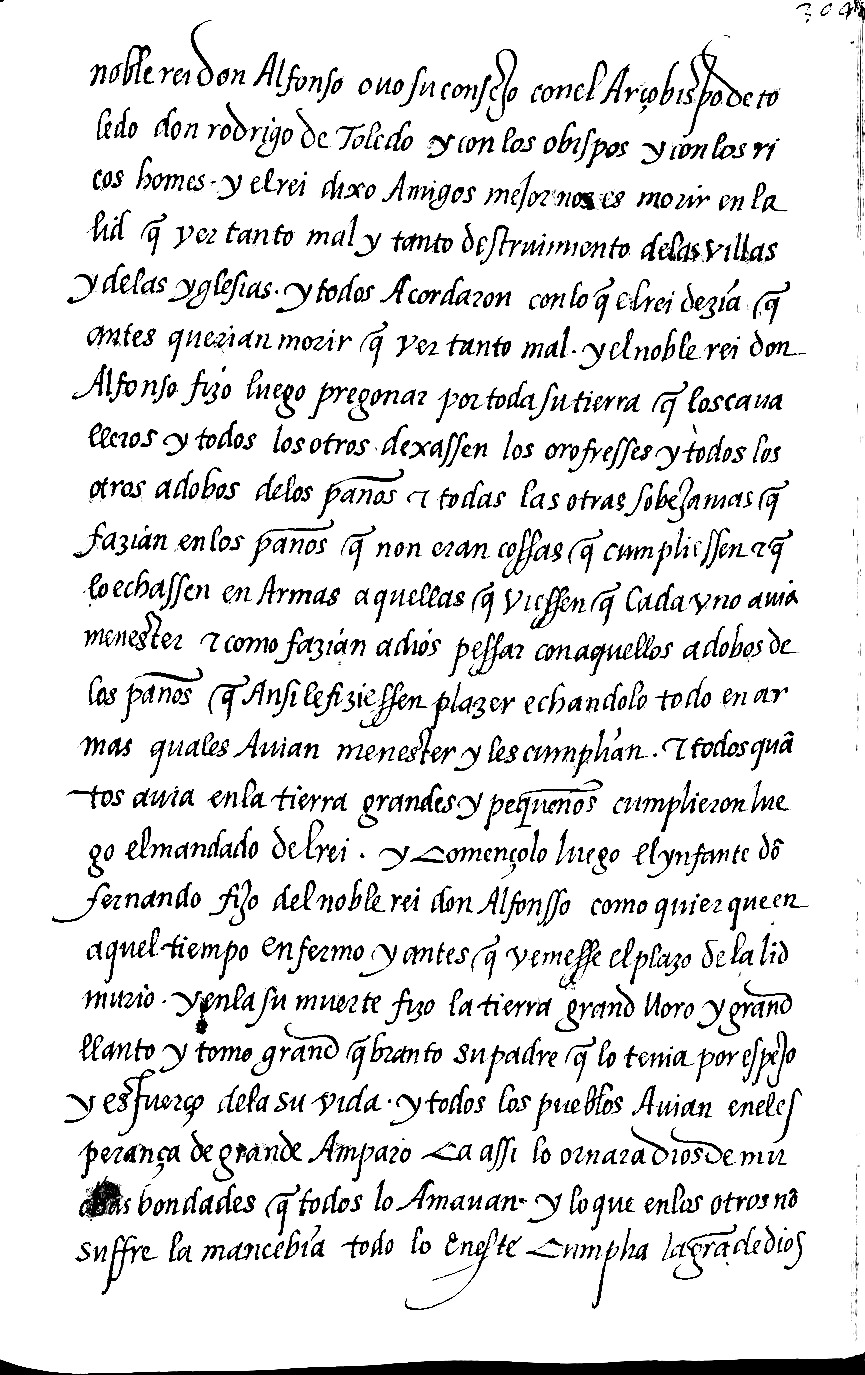 304
noble rei don Alfonso ovo su consejo con el Arçobispo de to
ledo don rodrigo de Toledo y con los obispos y con los ri
cos homes · y el rei dixo Amigos mejor nos es morir en la
lid q̃ ver tanto mal y tanto destruimiento delas villas
y delas yglesias · y todos Acordaron con lo q̃ el rei dezía q̃
antes querian morir q̃ ver tanto mal · y el noble rei don
Alfonso fizo luego pregonar por toda su tierra q̃ los cava
lleros y todos los otros dexassen los orofresses y todos los
otros adobos delos pan̄os ⁊ todas las otras sobejanias q̃
fazían en los pan̄os q̃ non eran cossas q̃ cumpliessen ⁊ q̃
lo echassen en Armas aquellas q̃ viessen q̃ Cada vno avia
menester ⁊ como fazían a diós pessar con aquellos adobos de
los pan̄os q̃ Ansi le fiziessen plazer echandolo todo en ar
mas quales Avian menester y les cumplían · ⁊ todos quã
tos avia en la tierra grandes y pequen̄os cumplieron lue
go el mandado del rei · y Començolo luego el ynfante dō
fernando fijo del noble rei don Alfonsso como quier que en
aquel tiempo enfermo y antes q̃ veniesse el plazo de la lid
murio · y en la su muerte fizo la tierra grand lloro y grand
llanto y tomo grand q̃branto su padre q̃ lo tenia por espejo
y esfuerço dela su vida · y todos los pueblos Avian en el es
perança de grande Amparo Ca assi lo ornara dios de mu
chas bondades q̃ todos lo Amavan · y lo que en los otros nō
suffre la mancebía todo lo en este Cumplia la gr̃a de dios